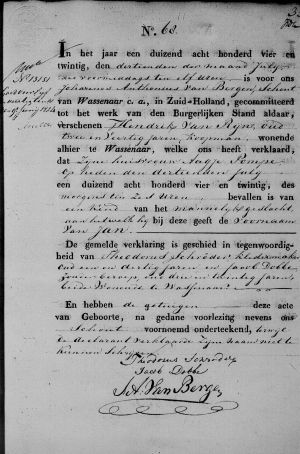 N°. 63.
In het jaar een duizend acht honderd vier en
twintig, den dertienden der maand July
des voormiddags ten elf Uren, is voor ons
Johannes Anthonius Van Bergen, Schout
van Wassenaar c. a., in Zuid-Holland, gecommitteerd
tot het werk van den Burgerlijken Stand aldaar,
verschenen Hendrik Van Rijn, oud
Twee en Veertig jaren, wonende
alhier te Wassenaar, welke ons heeft verklaard,
dat Zyne huisvrouw Aagje Pompe
Op heden den dertienden july
een duizend acht honderd vier en twintig, des
morgens ten Zes Uren, bevallen is van
een kind van het mannelijk geslacht,
aan hetwelk hij bij deze geeft de Voornaam
Van Jan.
De gemelde verklaring is geschied in tegenwoordig-
heid van Theodorus Schröder, kleedermaker
oud een en dertig jaren en Jacob Dobbe
zonder beroep, oud drie en twintig jaren,
beide Wonende te Wassenaar.
En hebben de getuigen deze acte
van Geboorte, na gedane voorlezing nevens ons
Schout voornoemd onderteekend, terwyl
de declarant verklaarde zyn naam niet te
kunnen Schryven.
Theodorus Schröder
Jacob Dobbe
J. A. Van Bergen